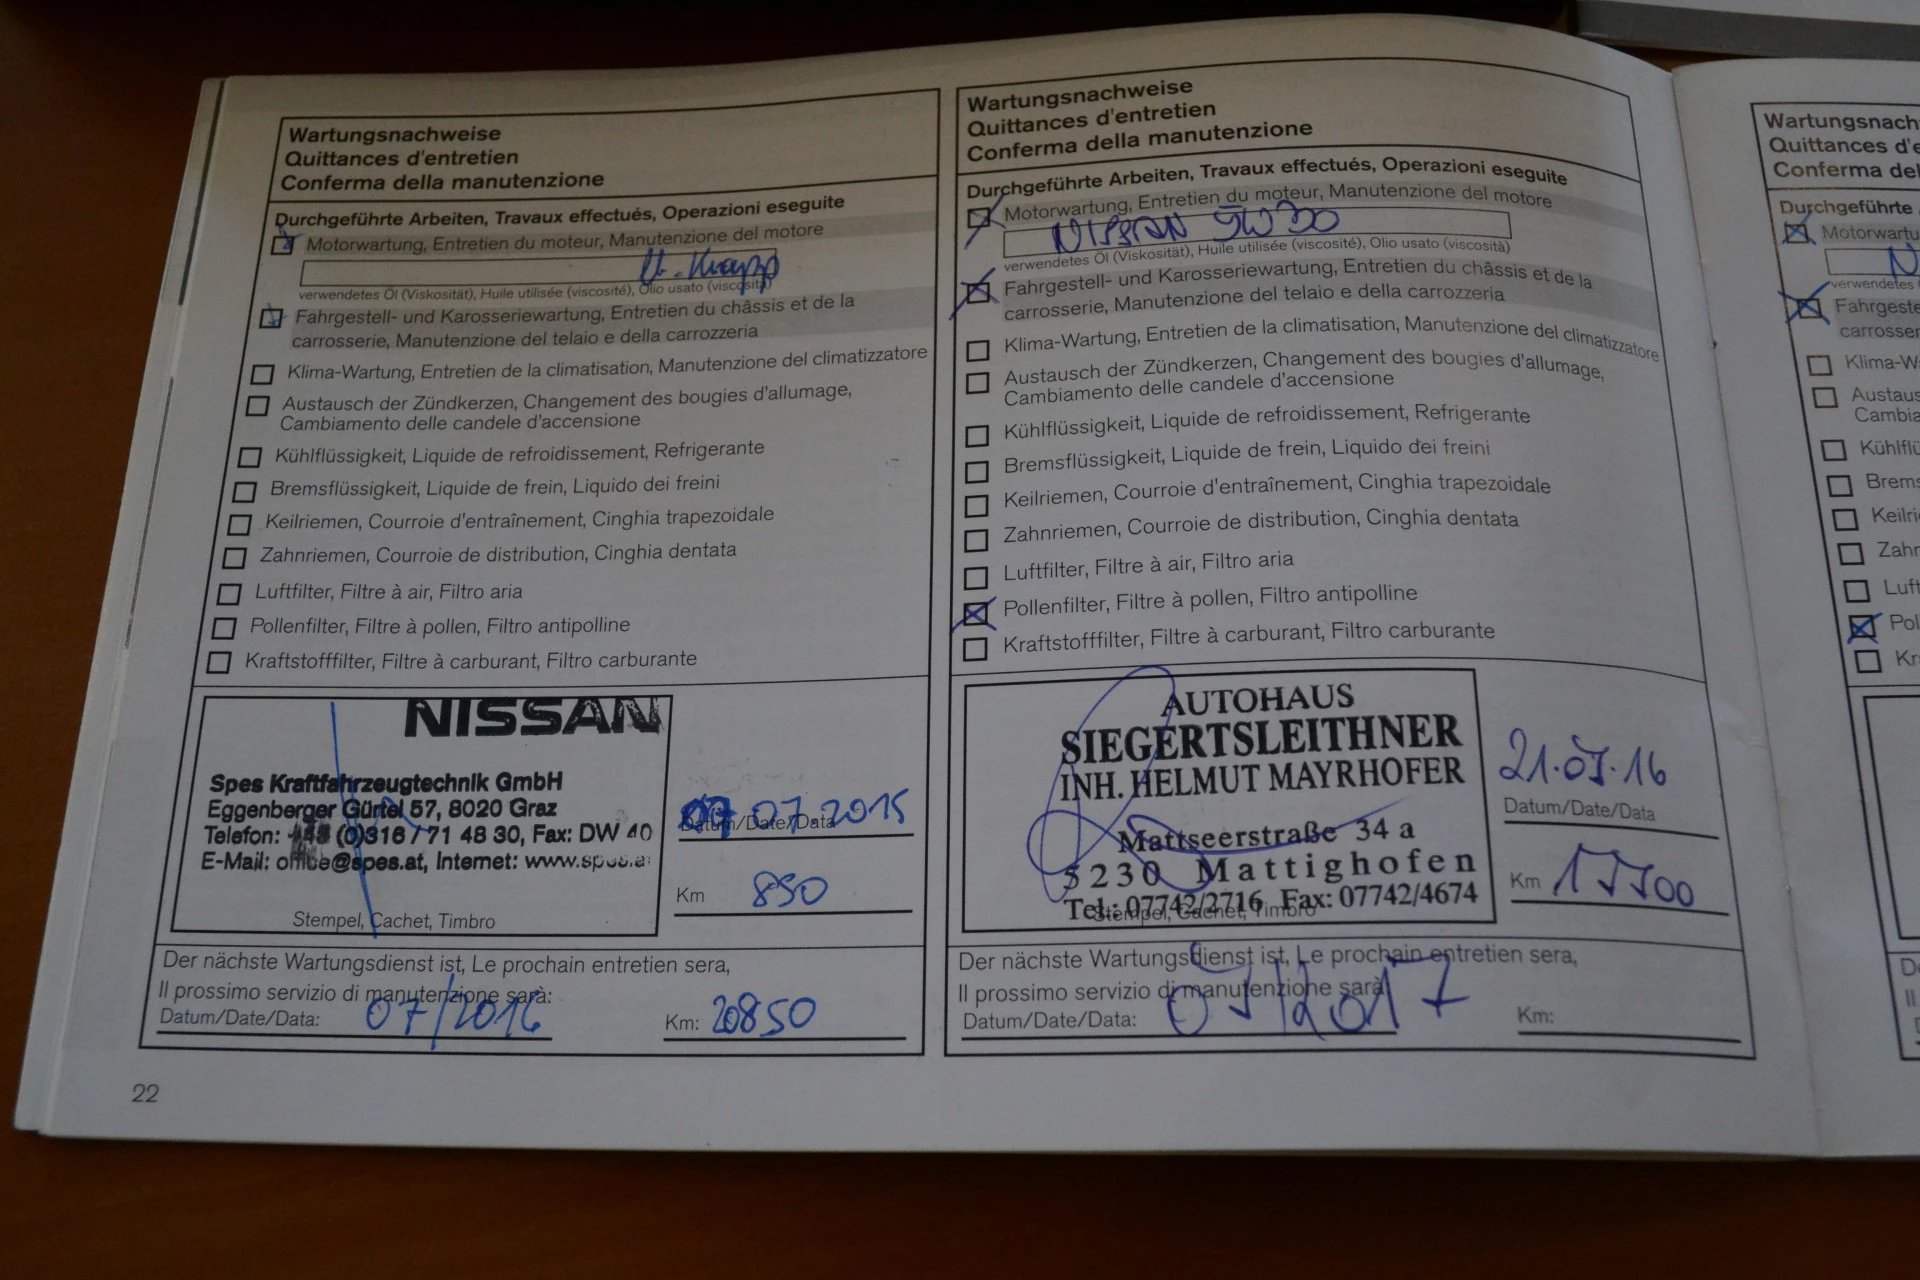 Wartungsnachweise
Quittances d'entretien
Conferma della manutenzione
Durchgeführte Arbeiten, Travaux effectués, Operazioni eseguite
Motorwartung, Entretien du moteur, Manutenzione del motore
verwendetes Öl (Viskosität), Huile utilisée (viscosité), Olio usato (viscosità)
Fahrgestell- und Karosseriewartung, Entretien du châssis et de la
carrosserie, Manutenzione del telaio e della carrozzeria
Klima-Wartung, Entretien de la climatisation, Manutenzione del climatizzatore
Austausch der Zündkerzen, Changement des bougies d'allumage,
Cambiamento delle candele d'accensione
Kühlflüssigkeit, Liquide de refroidissement, Refrigerante
Bremsflüssigkeit, Liquide de frein, Liquido dei freini
Keilriemen, Courroie d'entraînement, Cinghia trapezoidale
Zahnriemen, Courroie de distribution, Cinghia dentata
Luftfilter, Filtre à air, Filtro aria
Pollenfilter, Filtre à pollen, Filtro antipolline
Kraftstofffilter, Filtre à carburant, Filtro carburante
NISSAN
Spes Kraftfahrzeugtechnik GmbH
Eggenberger Gürtel 57, 8020 Graz
Telefon: +43 (0)316 / 71 48 30, Fax: DW 40
E-Mail: office@spes.at, Internet: www.spes.at
Stempel, Cachet, Timbro
07 07.2015
Datum/Date/Data
Km 850
Der nächste Wartungsdienst ist, Le prochain entretien sera,
Il prossimo servizio di manutenzione sarà:
Datum/Date/Data: 07/2016 Km: 20850
22
Wartungsnachweise
Quittances d'entretien
Conferma della manutenzione
Durchgeführte Arbeiten, Travaux effectués, Operazioni eseguite
Motorwartung, Entretien du moteur, Manutenzione del motore
NISSAN 5W30
verwendetes Öl (Viskosität), Huile utilisée (viscosité), Olio usato (viscosità)
Fahrgestell- und Karosseriewartung, Entretien du châssis et de la
carrosserie, Manutenzione del telaio e della carrozzeria
Klima-Wartung, Entretien de la climatisation, Manutenzione del climatizzatore
Austausch der Zündkerzen, Changement des bougies d'allumage,
Cambiamento delle candele d'accensione
Kühlflüssigkeit, Liquide de refroidissement, Refrigerante
Bremsflüssigkeit, Liquide de frein, Liquido dei freini
Keilriemen, Courroie d'entraînement, Cinghia trapezoidale
Zahnriemen, Courroie de distribution, Cinghia dentata
Luftfilter, Filtre à air, Filtro aria
Pollenfilter, Filtre à pollen, Filtro antipolline
Kraftstofffilter, Filtre à carburant, Filtro carburante
AUTOHAUS
SIEGERTSLEITHNER
INH. HELMUT MAYRHOFER
Mattseerstraße 34 a
5230 Mattighofen
Tel.: 07742/2716 Fax: 07742/4674
Stempel, Cachet, Timbro
Datum/Date/Data
Km
Der nächste Wartungsdienst ist, Le prochain entretien sera,
Il prossimo servizio di manutenzione sarà:
Datum/Date/Data: Km:
Wartungsnach
Quittances d'e
Conferma del
Durchgeführte
Motorwartu
N
verwendetes
Fahrgeste
carrosser
Klima-Wa
Austaus
Cambia
Kühlflü
Brems
Keilri
Zahn
Luft
Pol
Kr